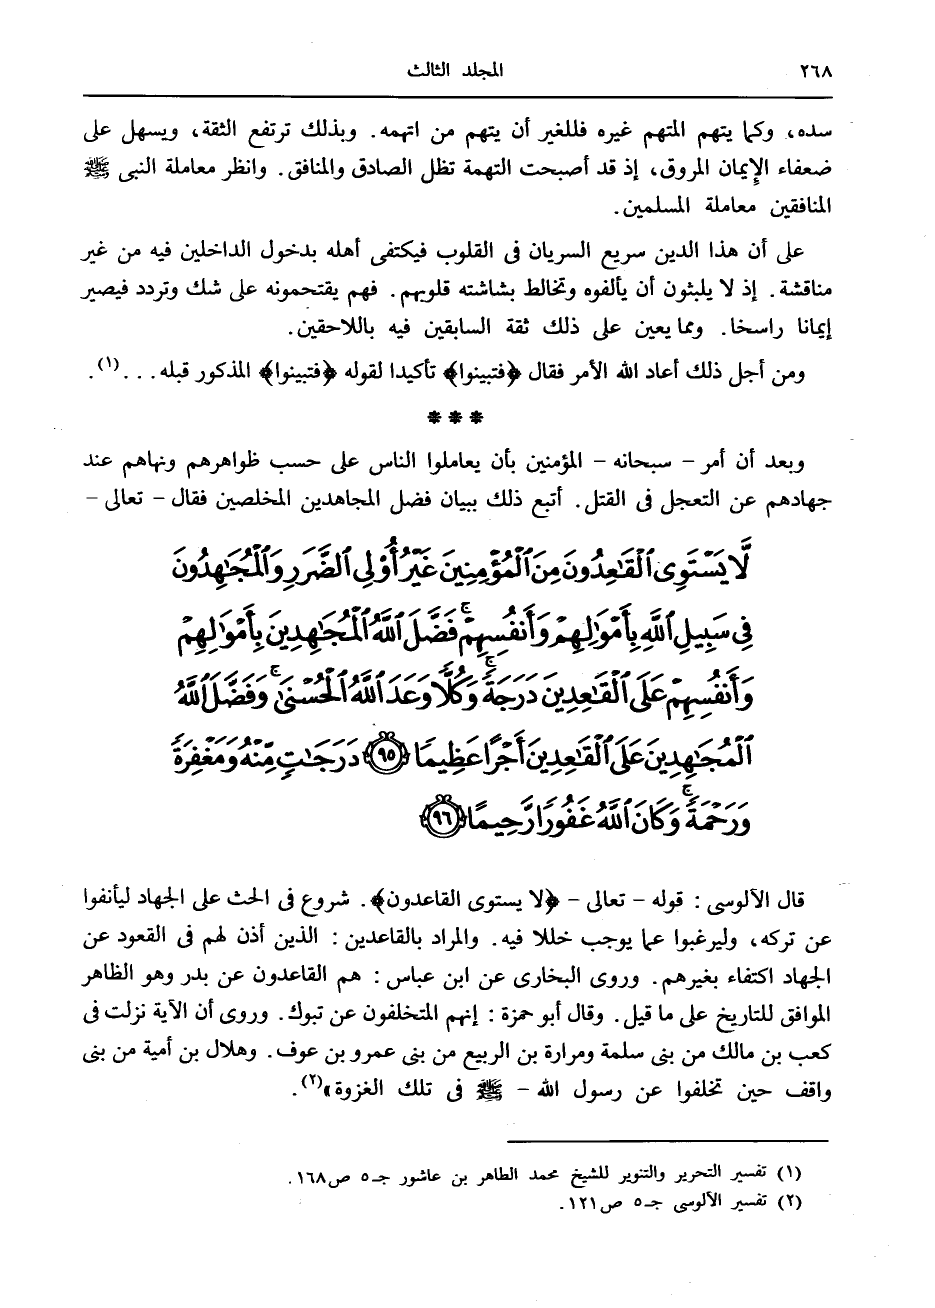 ٢٦٨
المجلد الثالث
سده، وكما يتهم المتهم غيره فللغير أن يتهم من اتهمه. وبذلك ترتفع الثقة، ويسهل على
ضعفاء الإيمان المروق، إذ قد أصبحت التهمة تظل الصادق والمنافق. وانظر معاملة النبى ﷺ
المنافقين معاملة المسلمين.
على أن هذا الدين سريع السريان فى القلوب فيكتفى أهله بدخول الداخلين فيه من غير
مناقشة. إذ لا يلبثون أن يألفوه وتخالط بشاشته قلوبهم. فهم يقتحمونه على شك وتردد فيصير
إيمانا راسخا. ومما يعين على ذلك ثقة السابقين فيه باللاحقين.
ومن أجل ذلك أعاد الله الأمر فقال ﴿فتبينوا﴾ تأكيدا لقوله ﴿فتبينوا﴾ المذكور قبله...(١).
***
وبعد أن أمر - سبحانه - المؤمنين بأن يعاملوا الناس على حسب ظواهرهم ونهاهم عند
جهادهم عن التعجل فى القتل. أتبع ذلك ببيان فضل المجاهدين المخلصين فقال - تعالى -
لَّا يَسْتَوِى ٱلْقَـٰعِدُونَ مِنَ ٱلْمُؤْمِنِينَ غَيْرُ أُو۟لِى ٱلضَّرَرِ وَٱلْمُجَـٰهِدُونَ
فِى سَبِيلِ ٱللَّهِ بِأَمْوَٰلِهِمْ وَأَنفُسِهِمْ ۚ فَضَّلَ ٱللَّهُ ٱلْمُجَـٰهِدِينَ بِأَمْوَٰلِهِمْ
وَأَنفُسِهِمْ عَلَى ٱلْقَـٰعِدِينَ دَرَجَةً ۚ وَكُلًّا وَعَدَ ٱللَّهُ ٱلْحُسْنَىٰ ۚ وَفَضَّلَ ٱللَّهُ
ٱلْمُجَـٰهِدِينَ عَلَى ٱلْقَـٰعِدِينَ أَجْرًا عَظِيمًا ٩٥ دَرَجَـٰتٍ مِّنْهُ وَمَغْفِرَةً
وَرَحْمَةً ۚ وَكَانَ ٱللَّهُ غَفُورًا رَّحِيمًا ٩٦
قال الآلوسى : قوله - تعالى - ﴿لا يستوى القاعدون﴾. شروع فى الحث على الجهاد ليأنفوا
عن تركه، وليرغبوا عما يوجب خللا فيه. والمراد بالقاعدين : الذين أذن لهم فى القعود عن
الجهاد اكتفاء بغيرهم. وروى البخارى عن ابن عباس : هم القاعدون عن بدر وهو الظاهر
الموافق للتاريخ على ما قيل. وقال أبو حمزة : إنهم المتخلفون عن تبوك. وروى أن الآية نزلت فى
كعب بن مالك من بنى سلمة ومرارة بن الربيع من بنى عمرو بن عوف. وهلال بن أمية من بنى
واقف حين تخلفوا عن رسول الله - ﷺ فى تلك الغزوة»(٢).
(١) تفسير التحرير والتنوير للشيخ محمد الطاهر بن عاشور جـ٥ ص١٦٨.
(٢) تفسير الآلوسى جـ٥ ص١٢١.